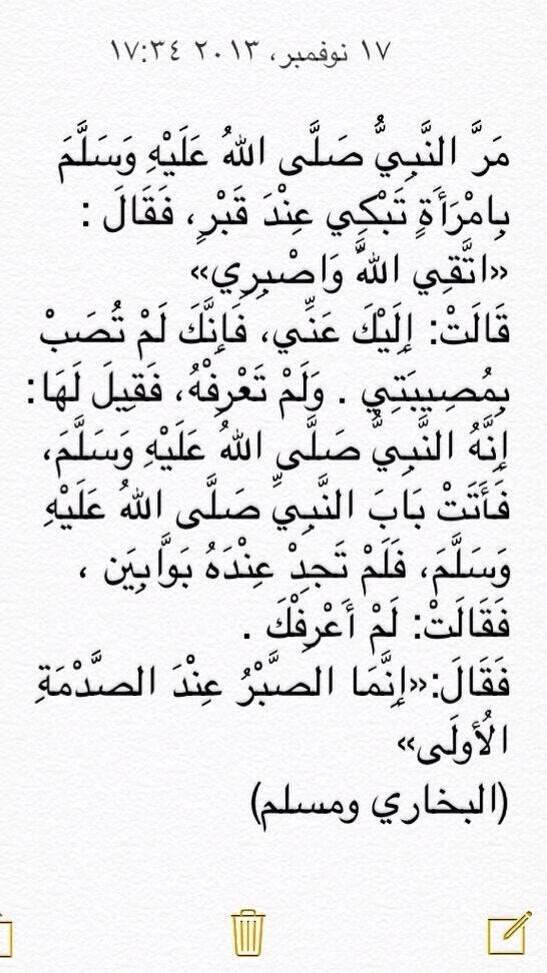 ١٧ نوفمبر، ٢٠١٣ ١٧:٣٤
مَرَّ النَّبِيُّ صَلَّى اللهُ عَلَيْهِ وَسَلَّمَ
بِامْرَأَةٍ تَبْكِي عِنْدَ قَبْرٍ، فَقَالَ :
«اتَّقِي اللهَ وَاصْبِرِي»
قَالَتْ: إِلَيْكَ عَنِّي، فَإِنَّكَ لَمْ تُصَبْ
بِمُصِيبَتِي . وَلَمْ تَعْرِفْهُ، فَقِيلَ لَهَا:
إِنَّهُ النَّبِيُّ صَلَّى اللهُ عَلَيْهِ وَسَلَّمَ،
فَأَتَتْ بَابَ النَّبِيِّ صَلَّى اللهُ عَلَيْهِ
وَسَلَّمَ، فَلَمْ تَجِدْ عِنْدَهُ بَوَّابِيَن ،
فَقَالَتْ: لَمْ أَعْرِفْكَ .
فَقَالَ:«إِنَّمَا الصَّبْرُ عِنْدَ الصَّدْمَةِ
الْأُولَى»
(البخاري ومسلم)